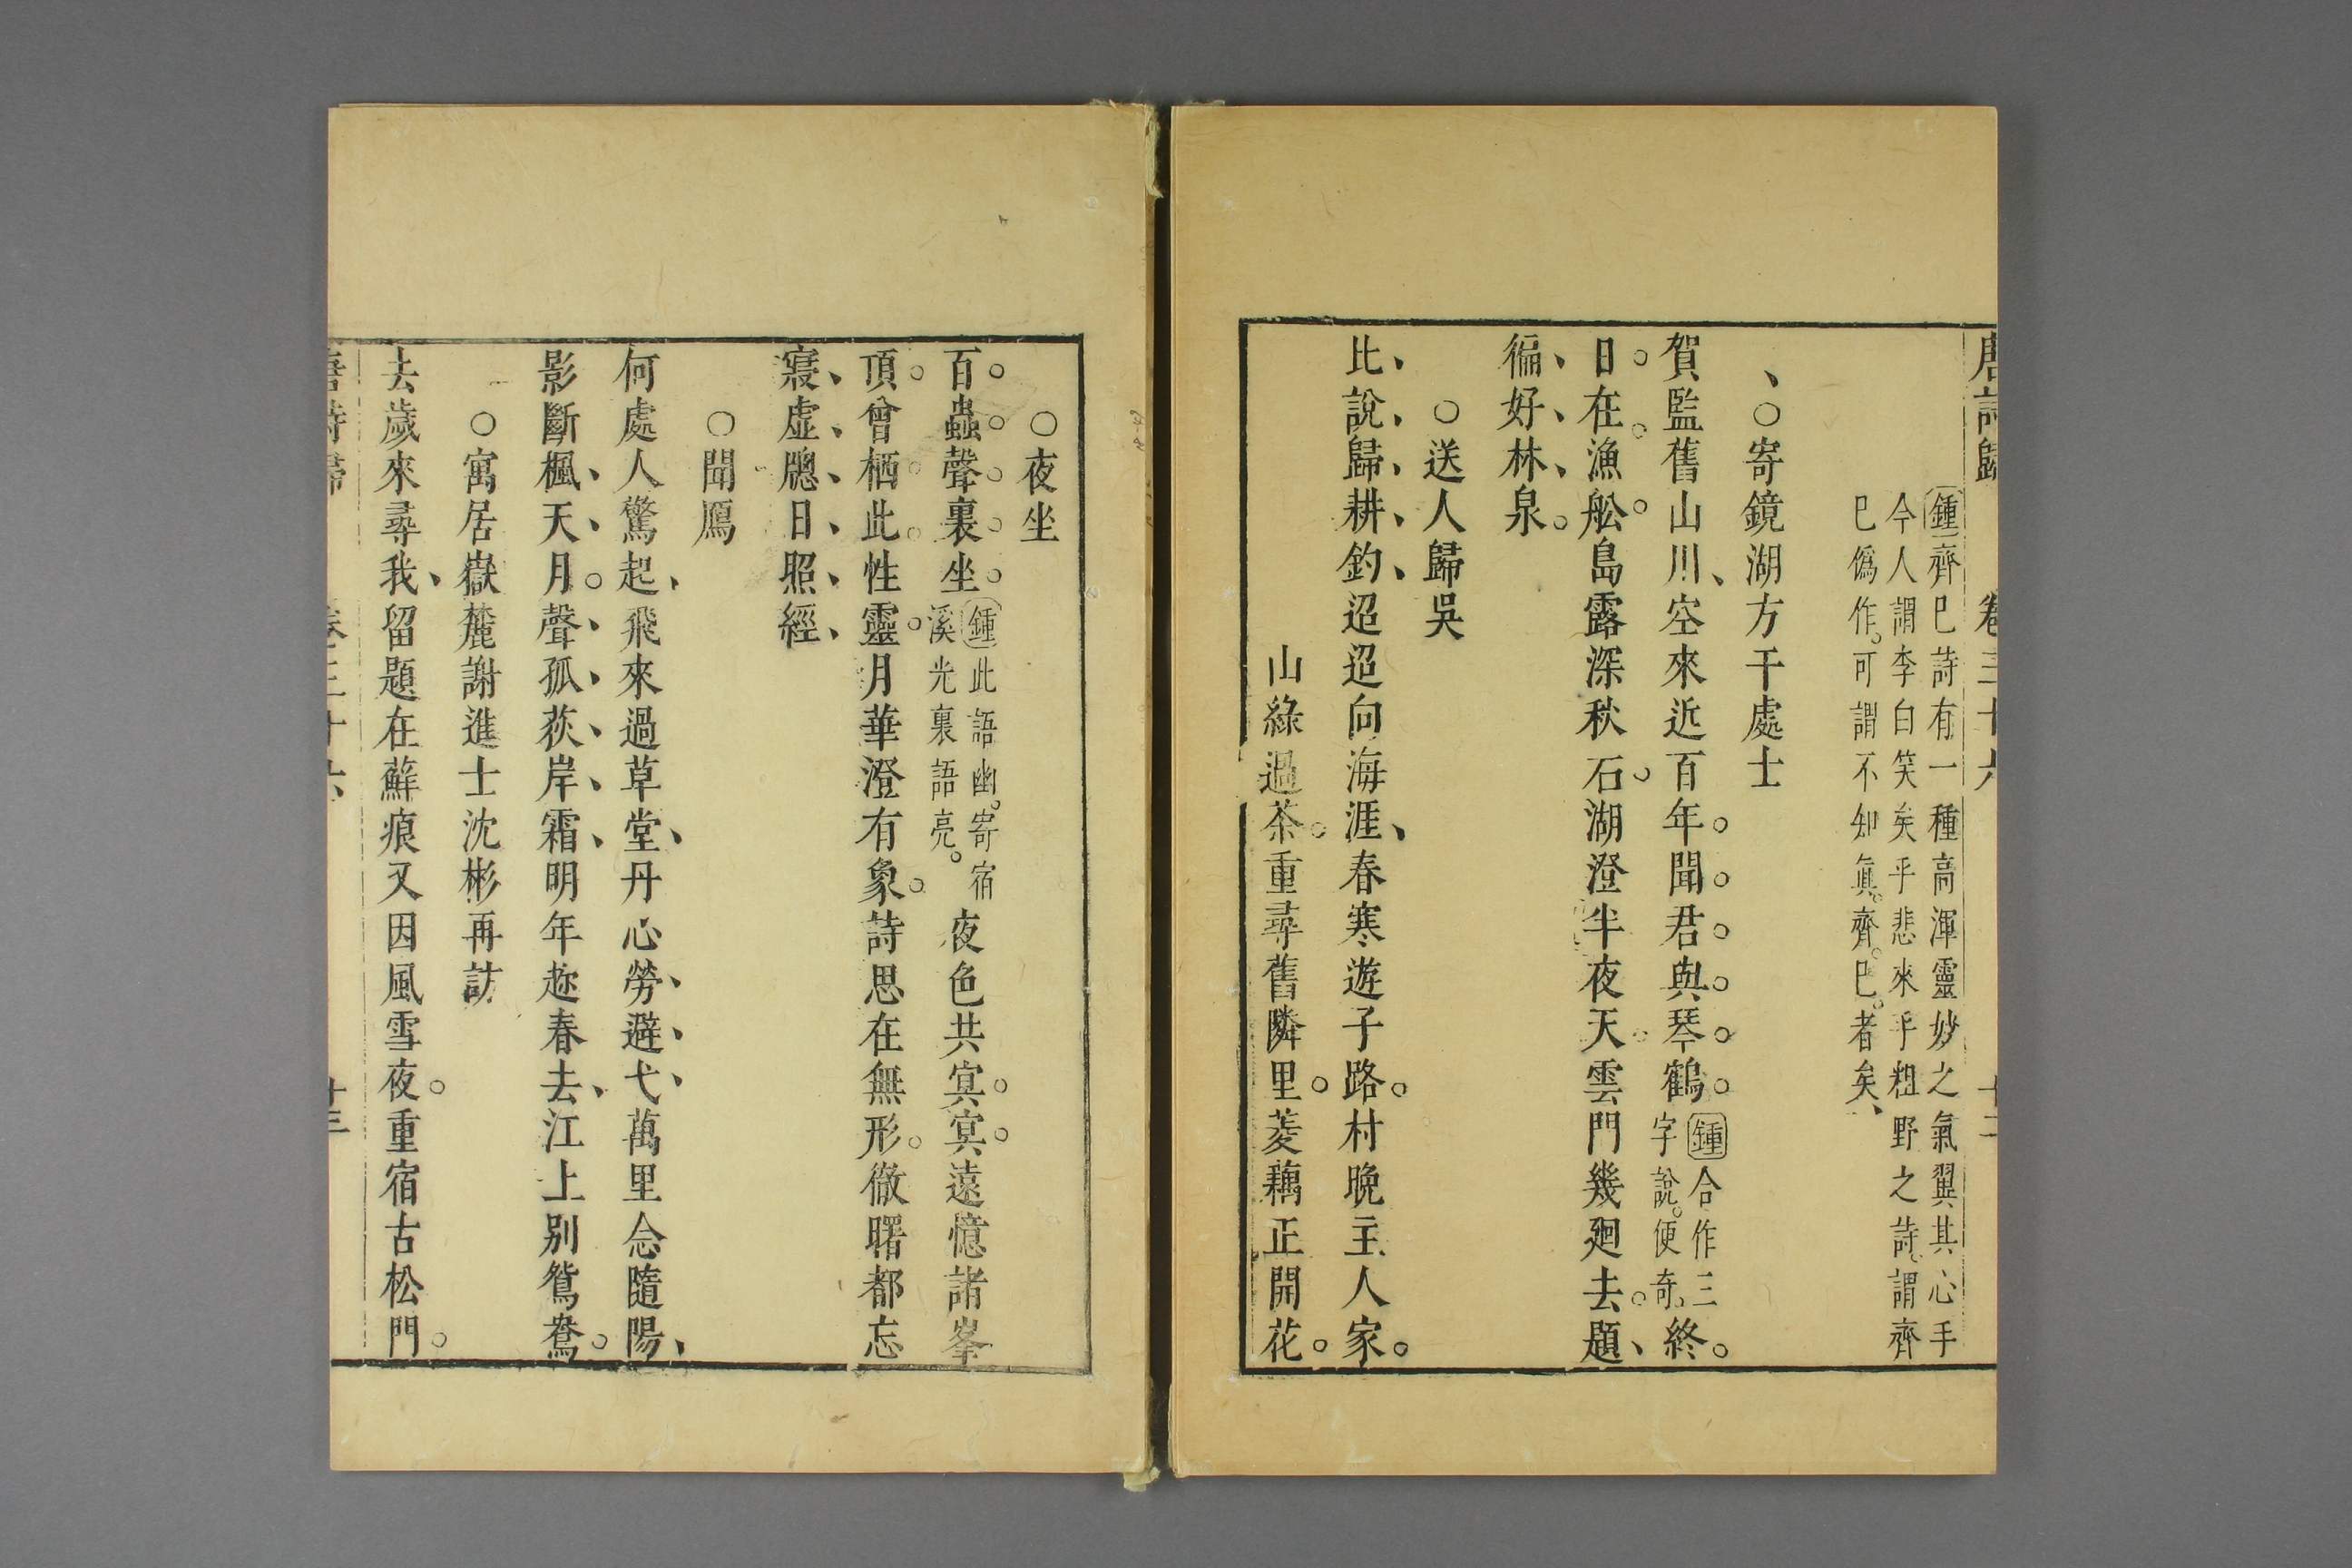 唐詩歸 卷三十六 十三
鍾齊巳詩有一種高渾靈妙之氣翼其心手
今人謂李白笑矣乎悲來乎粗野之詩謂齊
巳僞作可謂不知眞齊巳者矣
○寄鏡湖方干處士
賀監舊山川空來近百年聞君與琴鶴鍾合作三字說便奇終
日在漁舩島露深秋石湖澄半夜天雲門幾廻去題
徧好林泉
○送人歸吳
比說歸耕釣迢迢向海涯春寒遊子路村晚主人家
山綠過茶重尋舊隣里菱藕正開花
○夜坐
百蟲聲裏坐鍾此語幽寄宿溪光裏語亮夜色共冥冥遠憶諸峯
頂曾栖此性靈月華澄有象詩思在無形徹曙都忘
寢虛牕日照經
○聞鴈
何處人驚起飛來過草堂丹心勞避弋萬里念隨陽
影斷楓天月聲孤荻岸霜明年趂春去江上別鴛鴦
○寓居嶽麓謝進士沈彬再訪
去歲來尋我留題在蘚痕又因風雪夜重宿古松門
唐詩歸 卷三十六 十三